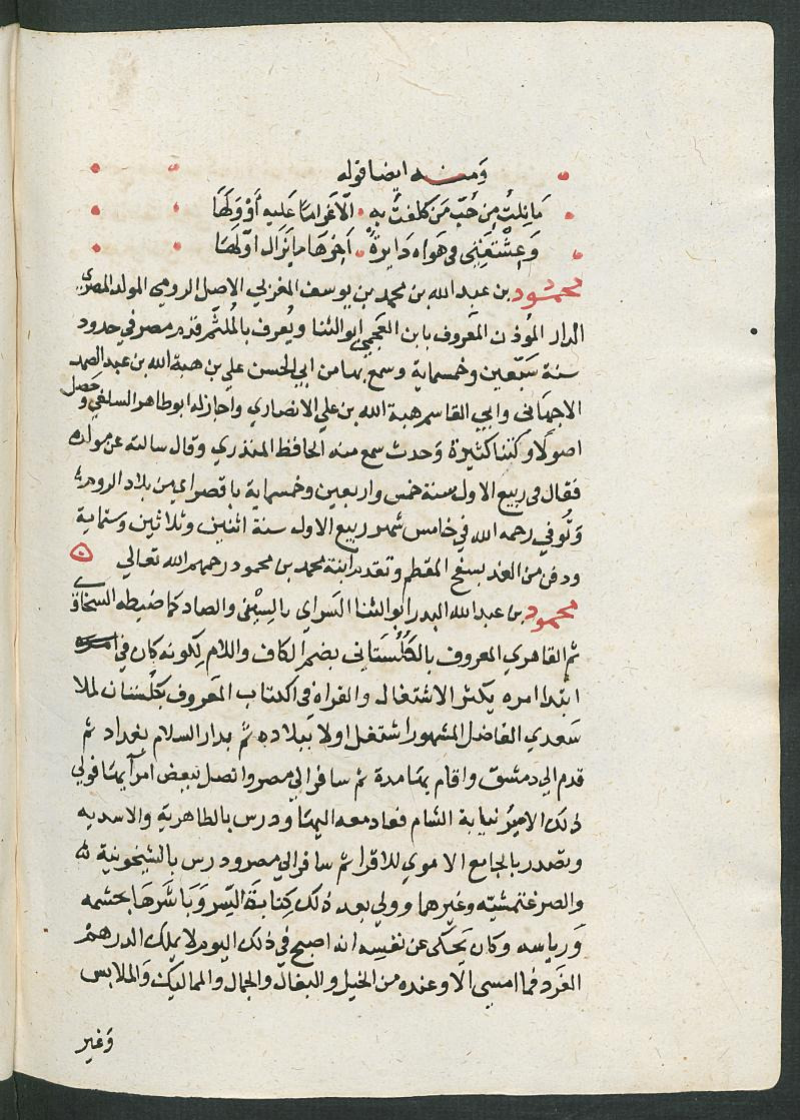 ومنه ايضا قوله
مَا نِلتُ مِن حُبّ مَن كلفتُ بِهِ الّا غراما عَليه أَوْ وَلَهَا
وَمحنتي في هواه دَايرةٌ اخرُهَا ما يَزال اوّلهَا
محمود بن عبد الله بن محمد بن يوسف المغربي الاصل الرومي المولد المصري
الدار المُؤذن المعروف بابن العجمي ابو الثنا ويُعرف بالمُلثّم قدم مصر في حدود
سنة سَبْعين وخمسماية وسمع بها من ابي الحسن علي بن هبة الله بن عبد الصمد
الاجهاني وابي القاسم هبة الله بن علي الانصاري واجاز له ابو طاهر السلفي وحَصل
اصولا وكتبا كثيرة وَحدث سمع منه الحافظ المنذري وقال سالته عن مولده
فقال في ربيع الاول سنة خمس واربعين وخمسماية باقصراي من بلاد الروم
وتُوفي رحمه الله في خامس شهر ربيع الاول سنة اثنين وثلاثين وستماية
ودفن من الغد بسفح المقطم وتقدم ابنة محمد بن محمود رحمهم الله تعالي
محمود بن عبد الله البدر ابو الثنا السَراي بالسِّيْن والصاد كما ضبطه السخاوي
ثم القاهري المعروف بالكُلُسْتَاني بضم الكاف واللام لِكونه كان في
ابتدا امره يكثر الاشتغال والقراة في اكتاب المعروف بكُلُسْتان لملا
سَعدي الفاضل المشهور اشتغل اولا ببلاده ثمّ بدار السلام بغداد ثم
قدم الي دمشق واقام بهَا مدة ثم سافر الي مصر واتصل ببعض امرآيهَا فولي
ذلك الامير نيابة الشام فعاد معه اليهَا ودرس بالظاهرية والاسديه
وتصدر بالجامع الاموي للاقرا ثم سافر الي مصر ودرس بالشيخونية
والصرغتمشيّه وغيرهما وولي بعد ذلك كِتابةَ السِّر وَبَاشَرَهَا بحشمه
وَرياسه وكان يَحكي عن نفسِه انه اصبح في ذلك اليوم لا يملك الدرهم
الفَرد فما امسي الا وعنده من الخيل والبغال والجمال والمماليك والملابس
وَغير